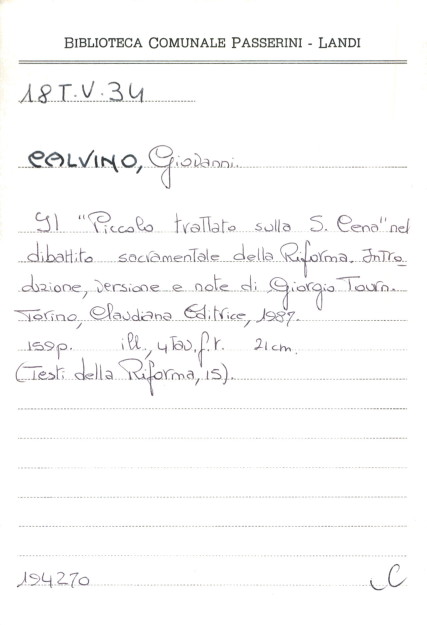 BIBLIOTECA COMUNALE PASSERINI - LANDI
18T.V.34
CALVINO, Giovanni.
Il "Piccolo trattato sulla S. Cena" nel
dibattito sacramentale della Riforma. Intro_
duzione, versione e note di Giorgio Tourn.
Torino, Claudiana Editrice, 1987.
159p. ill., 4 tav. f.t. 21cm.
(Testi della Riforma, 15).
194270 C